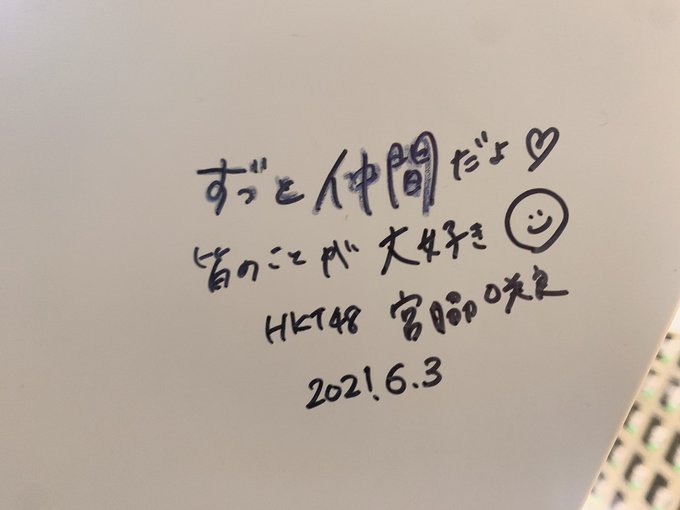 ずっと仲間だよ♡
皆のことが大好き☺
HKT48 宮脇咲良
2021.6.3